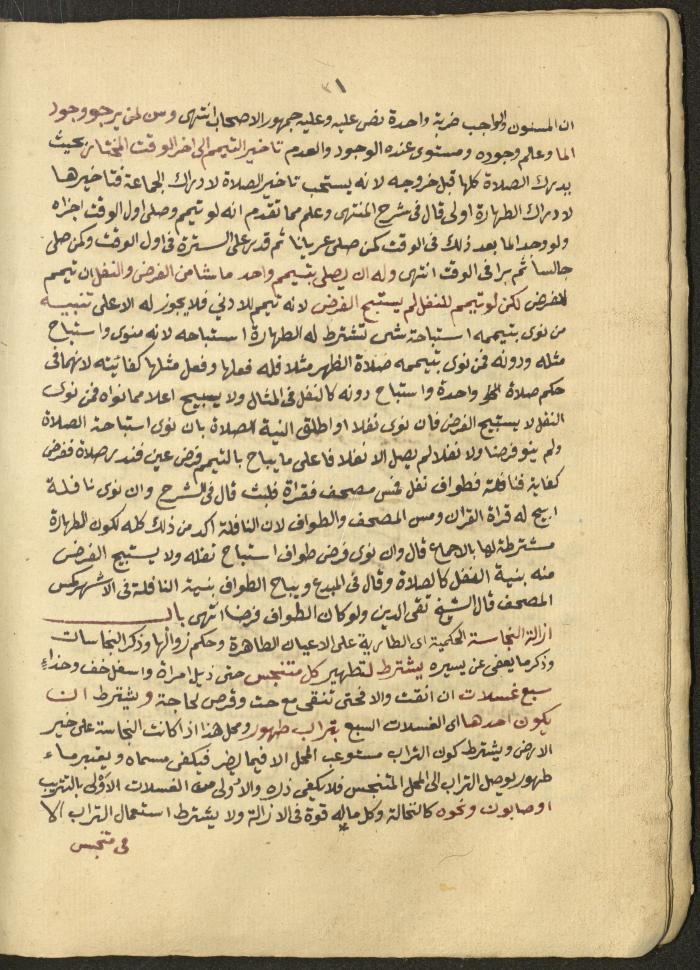 ان المسنون والواجب ضربة واحدة نص عليه وعليه جمهور الاصحاب انتهى وسن لمن يرجو وجود
الما وعالم وجوده ومستوى عنده الوجود والعدم تاخير التيمم الى اخر الوقت المختار بحيث
يدرك الصلاة كلها قبل خروجه لانه يستحب تاخير الصلاة لادراك الجماعة فتاخيرها
لادراك الطهارة اولى قال في شرح المنتهى وعلم مما تقدم انه لو تيمم وصلى اول الوقت اجزاه
ولو وجد الما بعد ذلك في الوقت كمن صلى عريانا ثم قدر على السترة في اول الوقت وكمن صلى
جالسا ثم برا في الوقت انتهى وله ان يصلى بتيمم واحد ما شا من الفرض والنفل ان تيمم
للفرض لكن لو تيمم للنفل لم يستبح الفرض لانه تيمم للادني فلا يجوز له الاعلى تنبيه
من نوى بتيممه استباحة شى تشترط له الطهارة استباحه لانه منوى واستباح
مثله ودونه فمن نوى بتيممه صلاة الظهر مثلا فله فعلها وفعل مثلها كفائتة لانهما في
حكم صلاة واحدة واستباح دونه كالنفل في المثال ولا يستبيح اعلا مما نواه فمن نوى
النفل لا يستبيح الفرض فان نوى نفلا او اطلق النية للصلاة بان نوى استباحة الصلاة
ولم ينو فرضا ولا نفلا لم يصل الا نفلا فاعلى ما يباح بالتيمم فرض عين فنذر صلاة ففرض
كفاية فنافلة فطواف نفل فمس مصحف فقراة فلبث قال في الشرح وان نوى نافلة
ابيح له قراة القران ومس المصحف والطواف لان النافلة اكد من ذلك كله لكون الطهارة
مشترطة لها بالاجماع قال وان نوى فرض طواف استباح نفله ولا يستبيح الفرض
منه بنية النفل كالصلاة وقال في المبدع ويباح الطواف بنية النافلة في الاشهر كمس
المصحف قال الشيخ تقى الدين ولو كان الطواف فرضا انتهى باب
ازالة النجاسة الحكمية اى الطارية على الاعيان الطاهرة وحكم زوالها وذكر النجاسات
وذكر ما يعفى عن يسيره يشترط لتطهير كل متنجس حتى ذيل امراة واسفل خف وحذاءٍ
سبع غسلات ان انقت والا فحتى تنقى مع حت وقرص لحاجة ويشترط ان
يكون احدها اى الغسلات السبع بتراب طهور ومحل هذا اذا كانت النجاسة على غير
الارض ويشترط كون التراب مستوعب المحل الا فيما يضر فيكفى مسماه ويعتبر ماء
طهور يوصل التراب الى المحل المتنجس فلا يكفى ذره والاولى من الغسلات الاولى بالتتريب
او صابون ونحوه كالنخالة وكل ماله قوة في الازالة ولا يشترط استعمال التراب الا
في متنجس